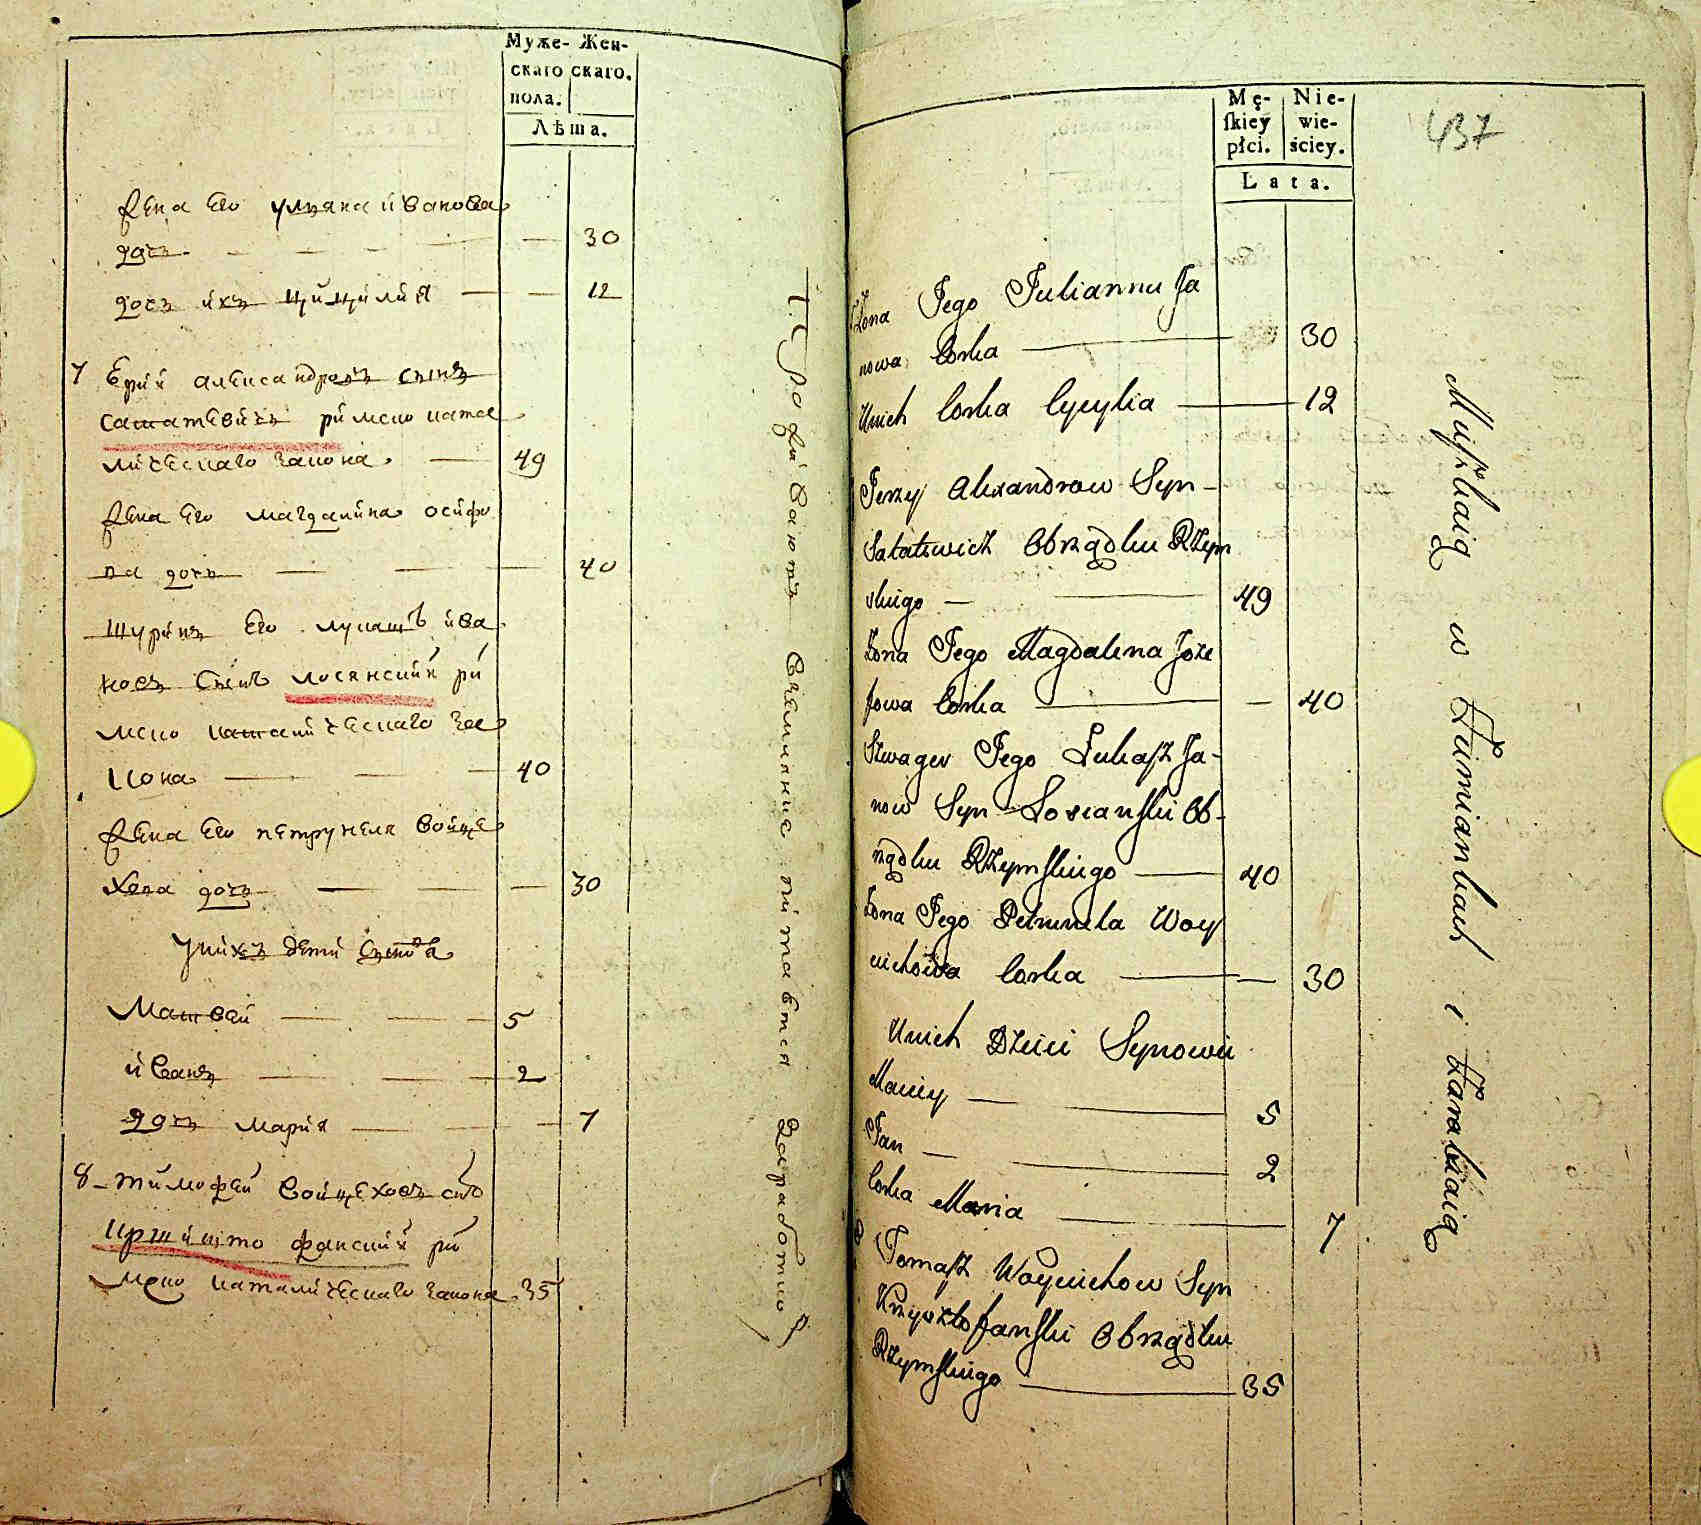 Муже- Жен-
скаго скаго.
пола.
Лѣта.
жена его улияна иванова
доч 30
доч ихъ цицилия 12
7 Ерий александровъ сынъ
саматевичъ римско като
лическаго закона 49
жена его магдалина осифо
ва доч 40
шуринъ его лукашъ ива
новъ сынъ лосянский ри
мско католическаго за
кона 40
жена его петрунеля войце
хова доч 30
у них дети сынов
Матвей 5
иванъ 2
доч мария 7
8 тимофей войцеховъ сынъ
кржиштофанский ри
мско католическаго закона 35
проживаютъ в землянке питается заработко
437
Mę- Nie-
skiey wie-
płci. ściey.
Lata.
Zona Jego Julianna Ja
nowa Corka 30
Unich Corka Cycylia 12
Jerzy Alexandrow Syn
Satatewicz Obrządku Rzym
skiego 49
Zona Jego Magdalena Joze
fowa Corka 40
Szwager Jego Łukasz Ja-
now Syn Łosianski Ob-
rządku Rzymskiego 40
Zona Jego Petrunela Woy
ciechowa Corka 30
Unich Dzieci Synowie
Maciey 5
Jan 2
Corka Maria 7
8 Tomasz Woyciechow Syn
Krzysztofanski Obrządku
Rzymskiego 35
Mieszkaią w Ziemiankach i Zarabiaią